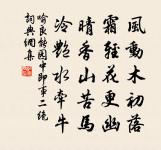 風動木初落
霜輕花更幽
晴香山苦馬
冷艷水牽牛
喻良能園中即事二絕
詞典網集